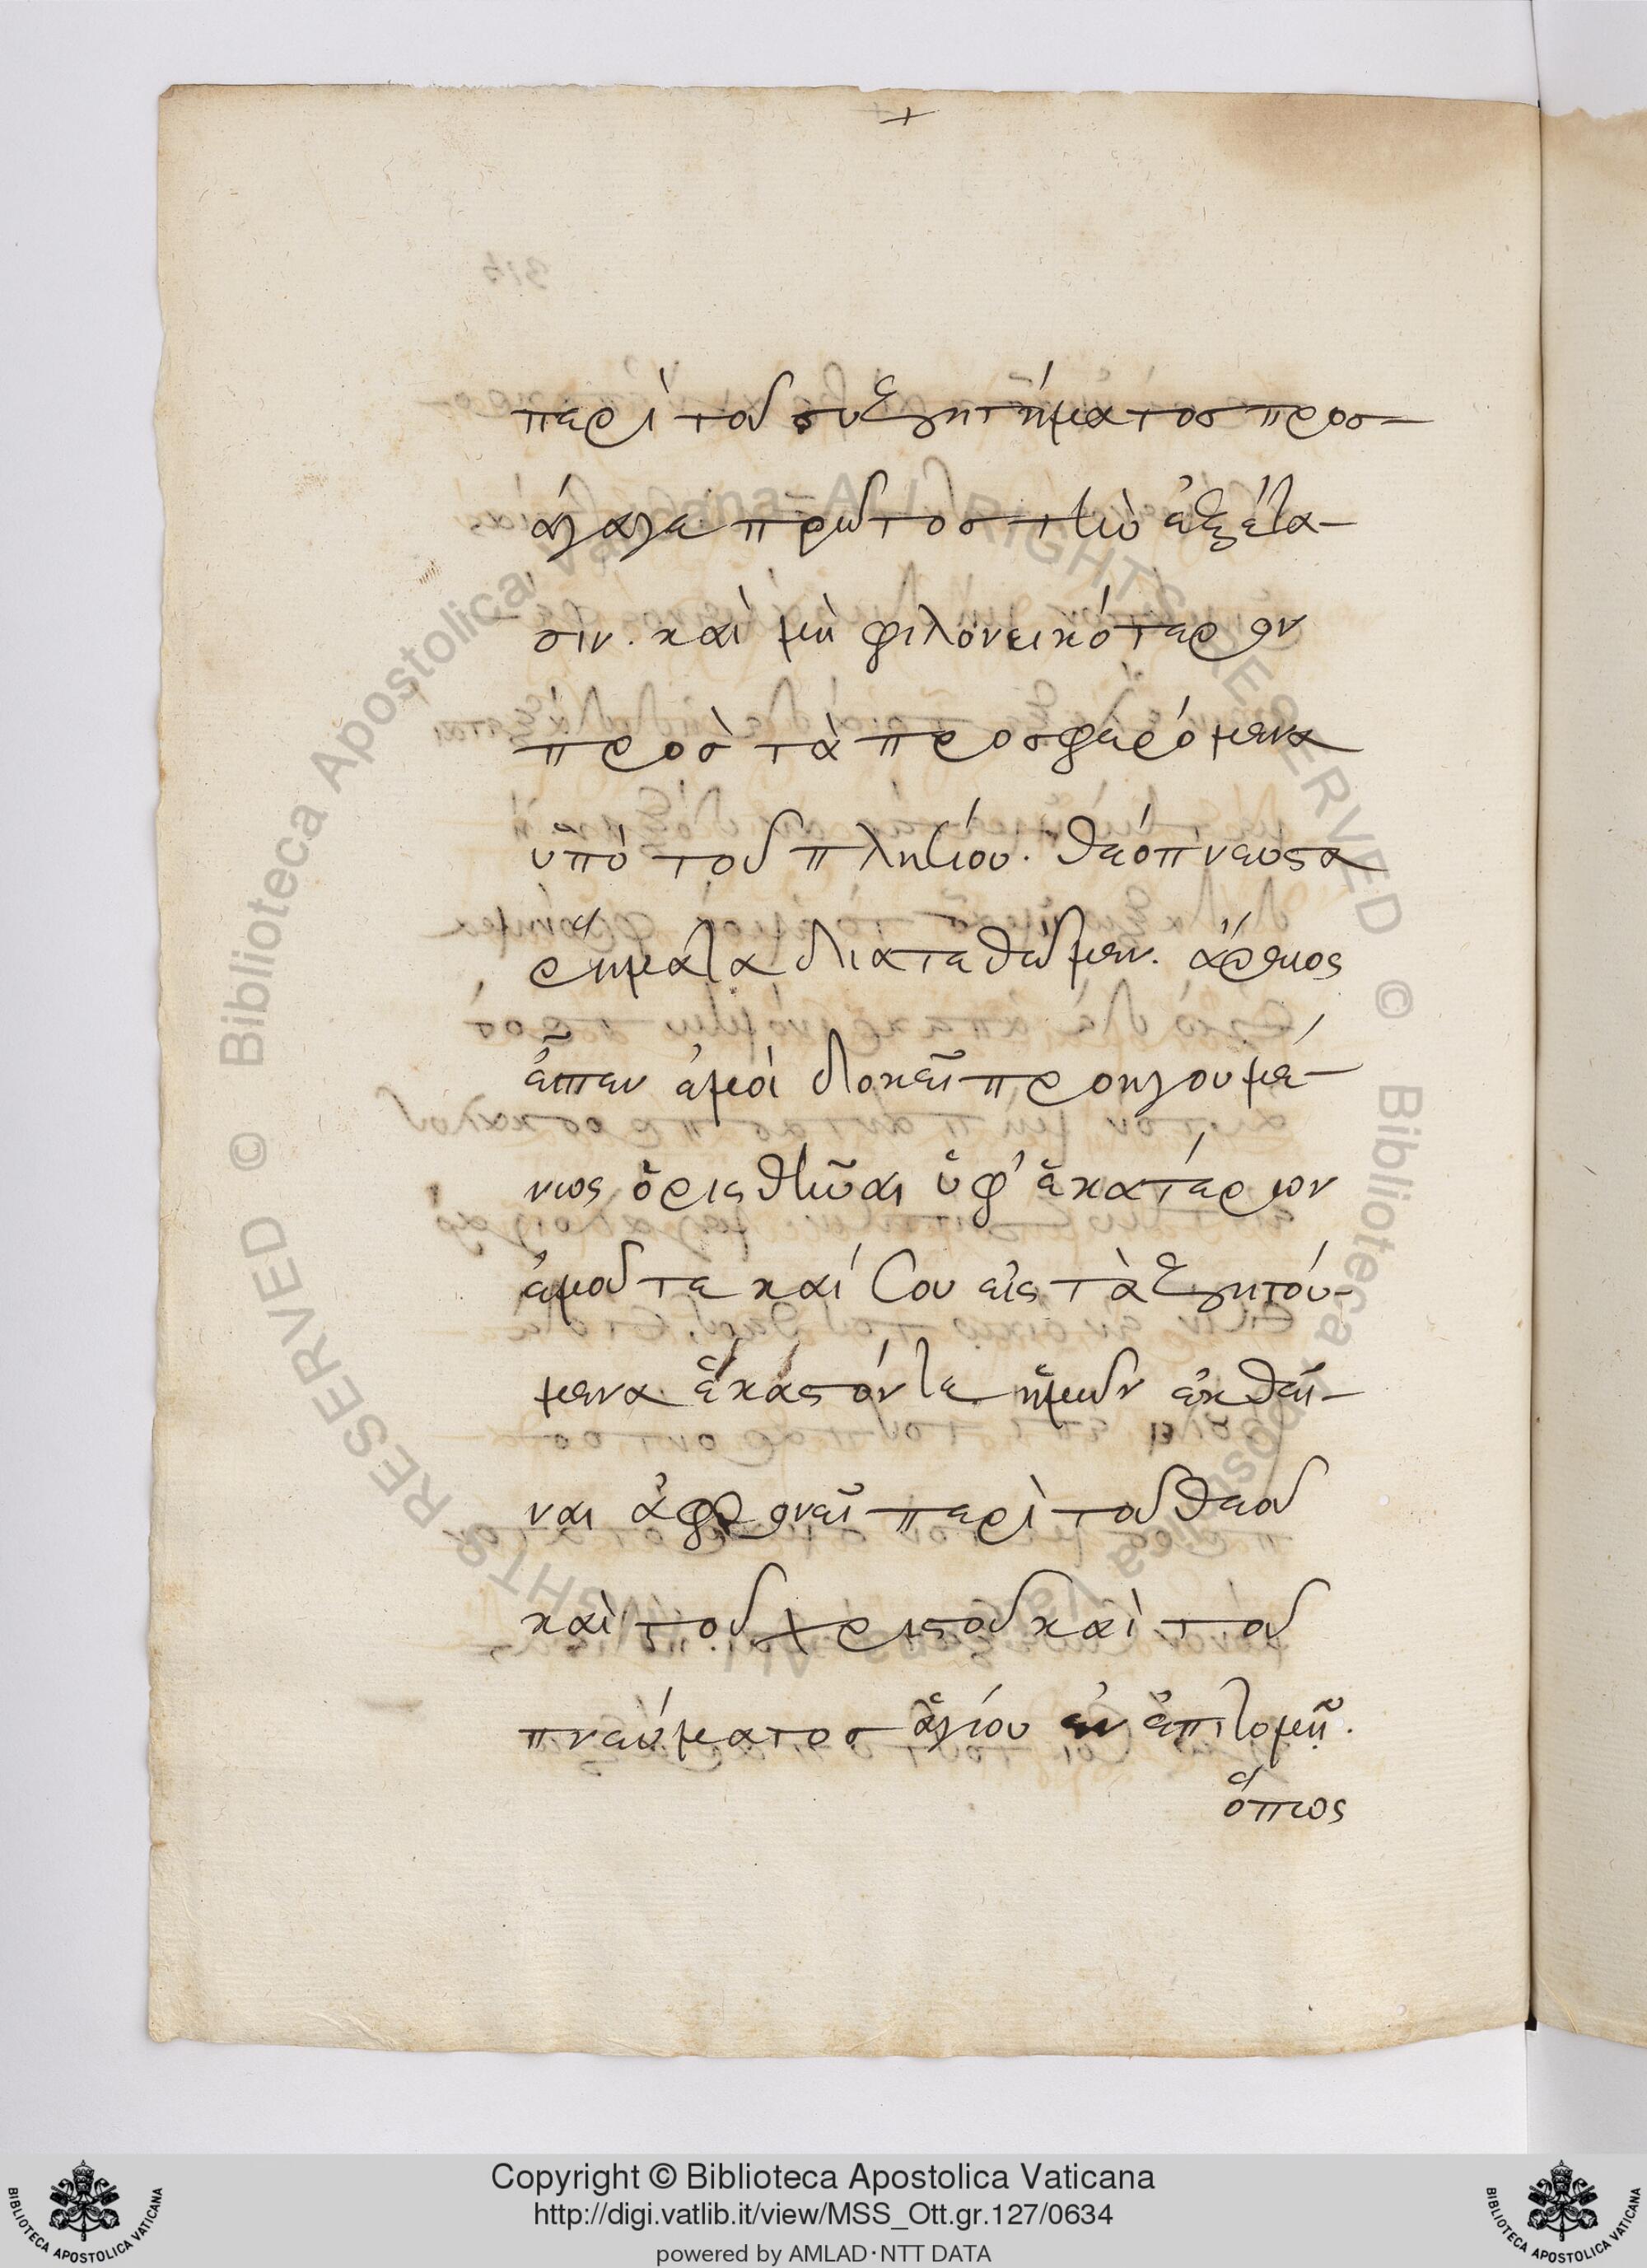 περὶ τοῦ συζητήματος προσ-
άγαγε πρῶτος τὴν ἐξέτα-
σιν. καὶ μὴ φιλονεικότερον
πρὸς τὰ προσφερόμενα
ὑπὸ τοῦ πλησίου. θεόπνευστα
ῥήματα διατεθῶμεν. ἄρειος
εἶπεν ἐμοὶ δοκεῖ προηγουμέ-
νως ὁρισθῆναι ὑφ' ἑκατέρων
ἐμοῦ τε καί σου εἰς τὰ ζητού-
μενα ἕκαστόν τε ἡμῶν ἐκθεῖ-
ναι ἃ φρονεῖ περὶ τοῦ θεοῦ
καὶ τοῦ χριστοῦ καὶ τοῦ
πνεύματος ἁγίου ἐν ἐπιτομῇ.
ὅπως
Copyright © Biblioteca Apostolica Vaticana
http://digi.vatlib.it/view/MSS_Ott.gr.127/0634
powered by AMLAD·NTT DATA
BIBLIOTECA APOSTOLICA VATICANA
BIBLIOTECA APOSTOLICA VATICANA
© Biblioteca Apostolica Vaticana - ALL RIGHTS RESERVED © Biblioteca Apostolica Vaticana - ALL RIGHTS RESERVED